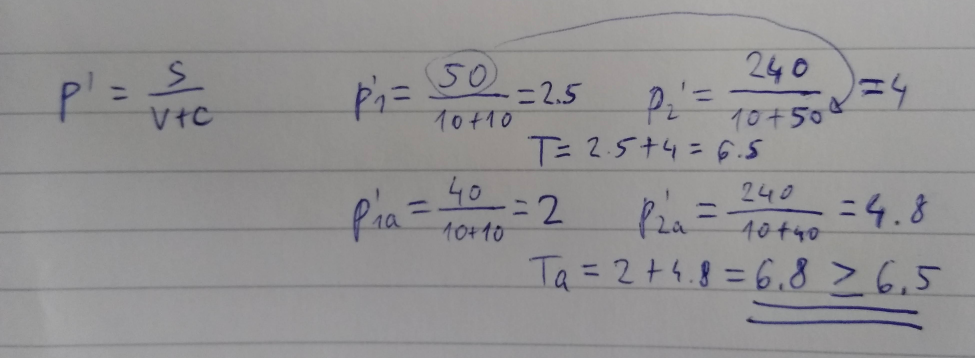 p' = s/(v+c) p'1 = 50/(10+10) = 2.5 p2' = 240/(10+50) = 4
T = 2.5 + 4 = 6.5
p'1a = 40/(10+10) = 2 p'2a = 240/(10+40) = 4.8
Ta = 2 + 4.8 = 6.8 ≥ 6.5